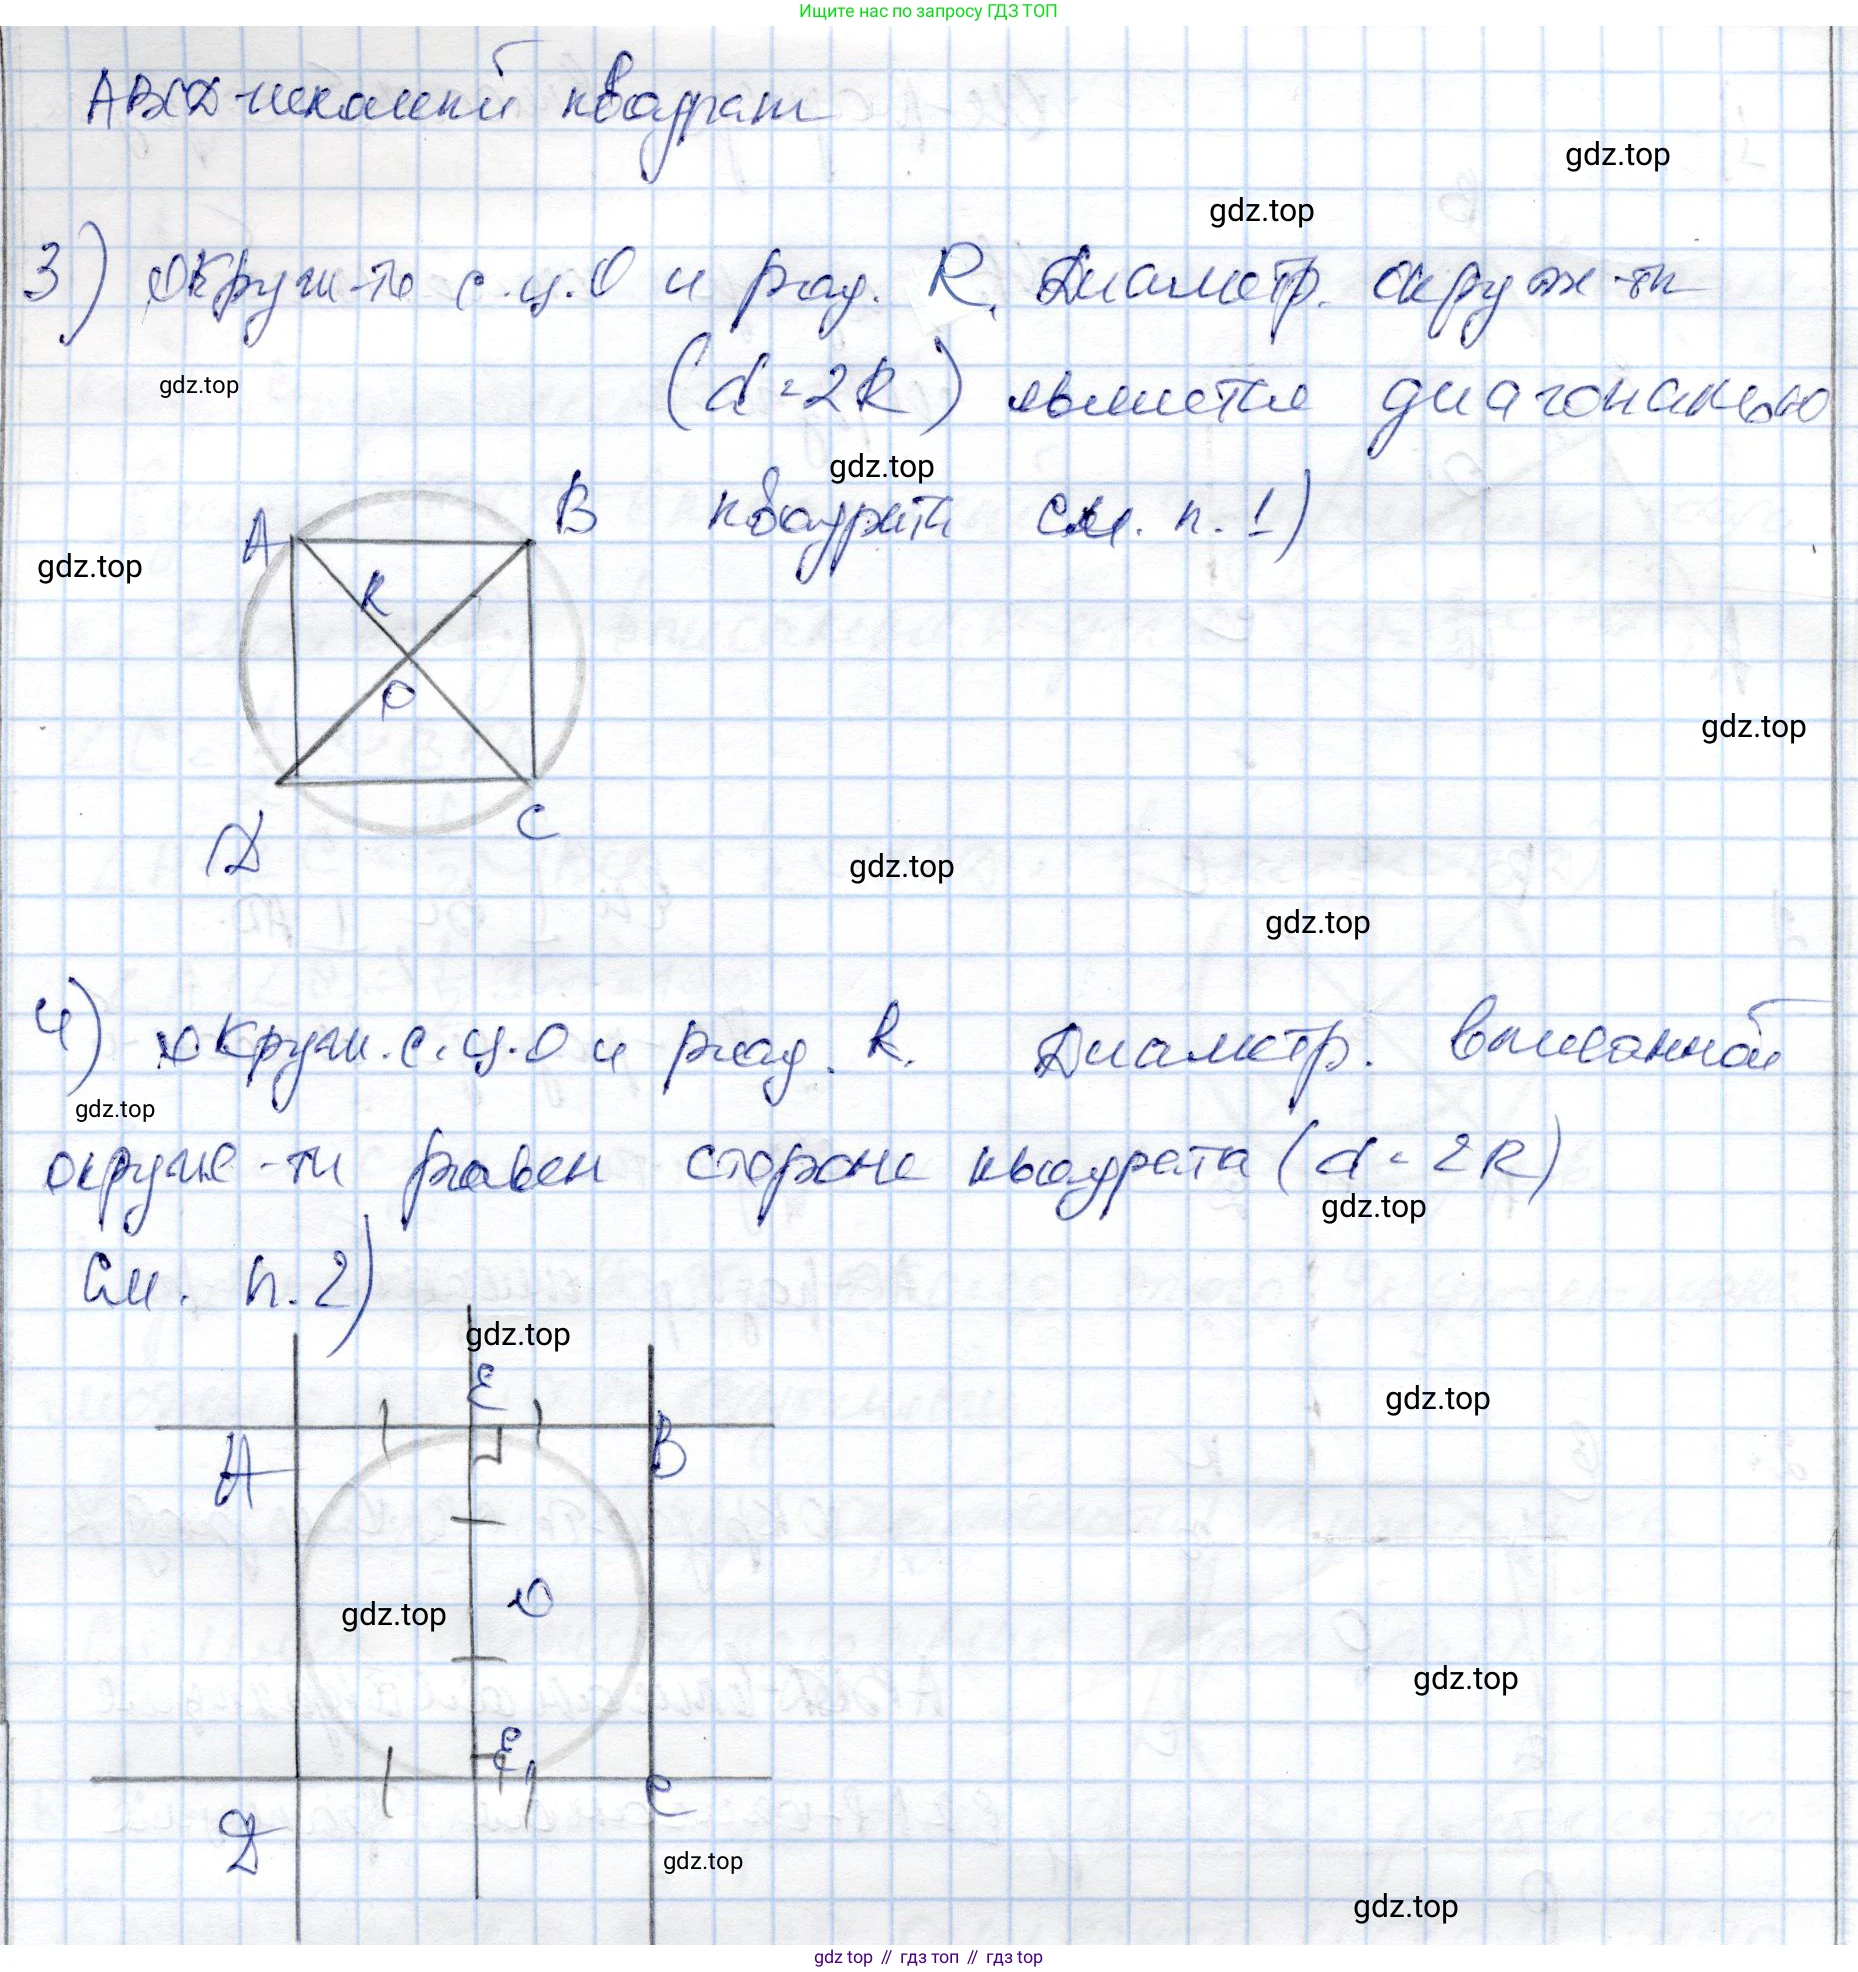 Ищите нас по запросу ГДЗ ТОП
ABCD - искомый квадрат
gdz.top
gdz.top
3) Окруж-ть с ц. O и рад. R. Диаметр. окруж-ти
gdz.top
(d = 2R) является диагональю
gdz.top
квадрата см. п. 1)
A
B
gdz.top
R
O
gdz.top
D
C
gdz.top
gdz.top
4) окруж. с. ц. O и рад. R. Диаметр. вписанной
gdz.top
окруж-ти равен стороне квадрата (d = 2R)
gdz.top
см. п. 2)
gdz.top
E
gdz.top
A
B
O
gdz.top
gdz.top
E₁
C
D
gdz.top
gdz.top
gdz top // гдз топ // гдз top